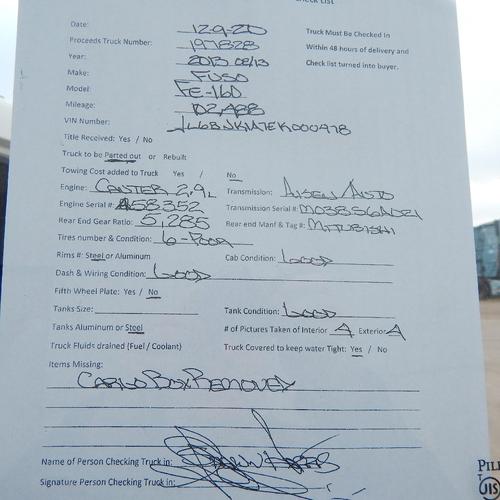 Check List
Date: 12-9-20 Truck Must Be Checked in
Proceeds Truck Number: 197828 Within 48 hours of delivery and
Year: 2013 08/13 Check list turned into buyer.
Make: FUSO
Model: FE-160
Mileage: 102,488
VIN Number:
Title Received: Yes / No
Truck to be Parted out or Rebuilt
Towing Cost added to Truck Yes / No
Engine: CANTER 2.9L Transmission: AISEN/AUTO
Engine Serial #: Transmission Serial #:
Rear End Gear Ratio: 5.285 Rear end Manf & Tag #:
Tires number & Condition: 6-POOR
Rims #: Steel or Aluminum Cab Condition: GOOD
Dash & Wiring Condition: GOOD
Fifth Wheel Plate: Yes / No
Tanks Size: Tank Condition: GOOD
Tanks Aluminum or Steel # of Pictures Taken of Interior 4 Exterior 4
Truck Fluids drained (Fuel / Coolant) Truck Covered to keep water Tight: Yes / No
Items Missing:
CARGO BOX REMOVED
Name of Person Checking Truck in:
Signature Person Checking Truck in: